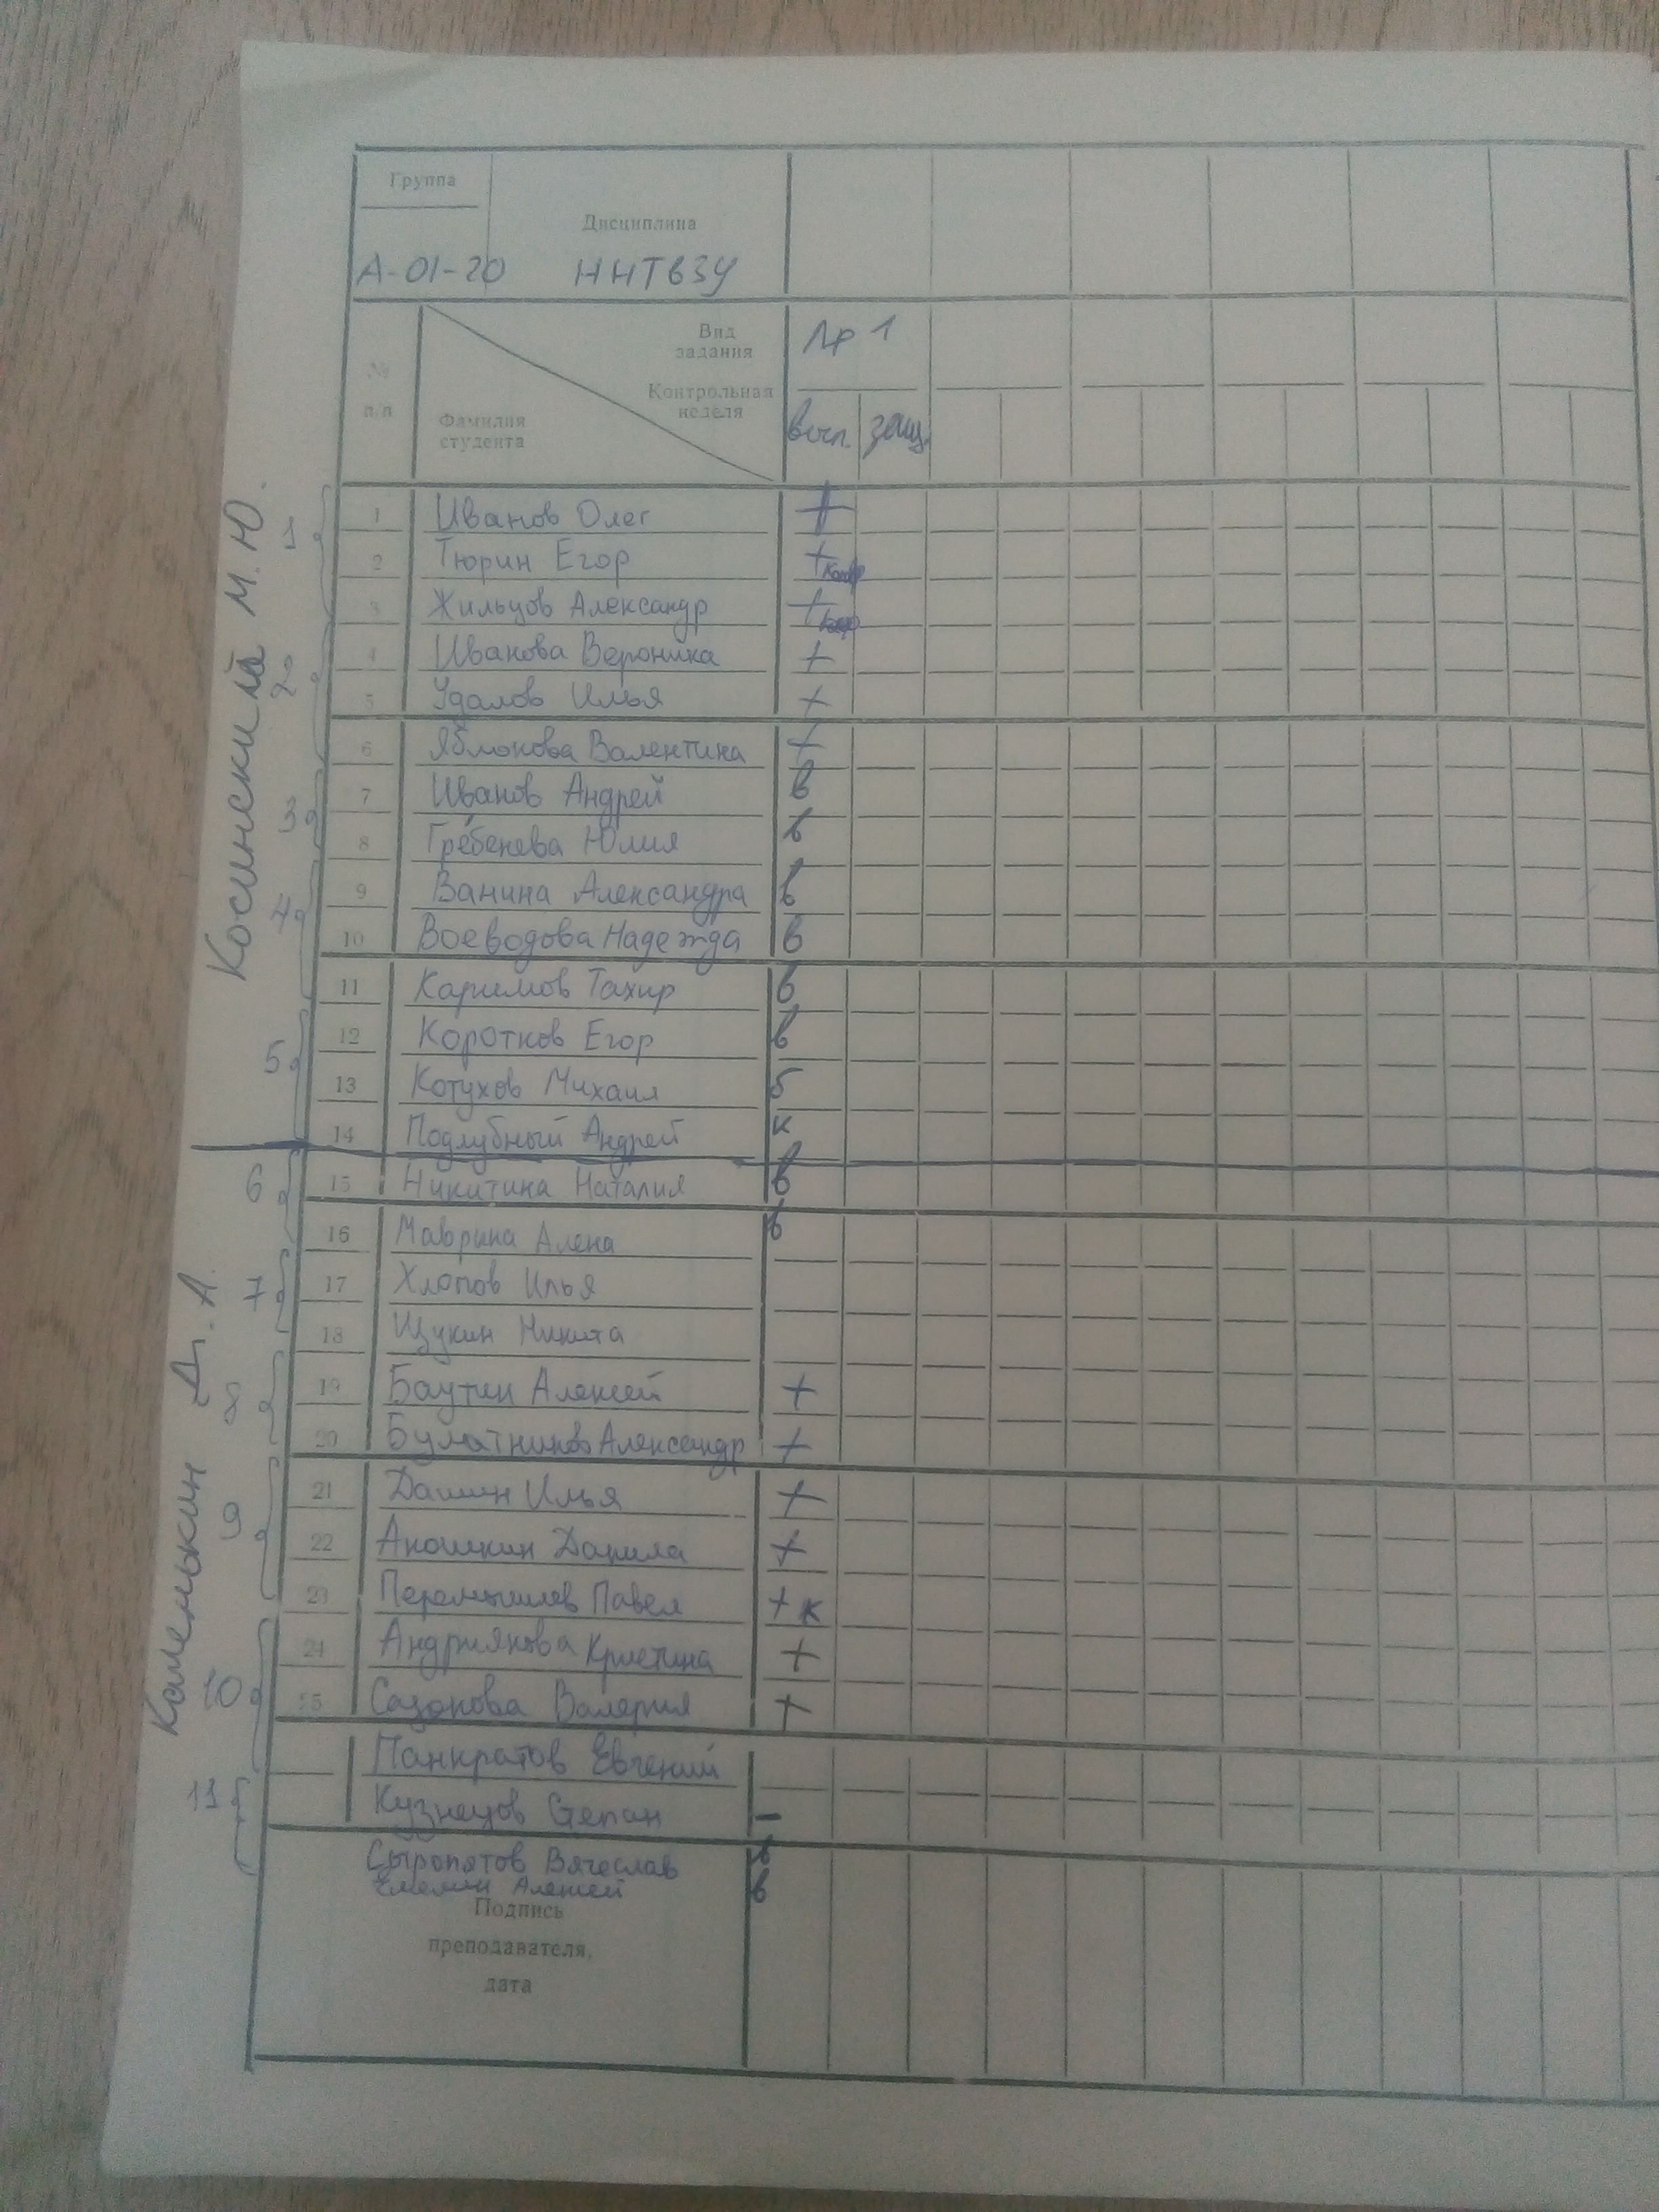 Группа
Дисциплина
А-01-20 ННТвЗУ
Вид задания ЛР 1
Контрольная неделя
№ п/п
Фамилия студента
вып. защ.
Косинский М. Ю.
1
1 Иванов Олег +
2 Тюрин Егор +
3 Жильцов Александр +
2
4 Иванова Вероника +
5 Удалов Илья +
6 Яблокова Валентина +
3
7 Иванов Андрей в
8 Гребенева Юлия в
4
9 Ванина Александра в
10 Воеводова Надежда в
11 Каримов Тахир в
5
12 Коротков Егор в
13 Котухов Михаил б
14 Подлубный Андрей к
Каленькин Д. А.
6
15 Никитина Наталия в
16 Маврина Алена в
7
17 Хлопов Илья
18 Щукин Никита
8
19 Баутин Алексей +
20 Булатников Александр +
9
21 Дашин Илья +
22 Аношкин Данила +
23 Перемышлев Павел + к
10
24 Андриянова Кристина +
25 Сазонова Валерия +
Панкратов Евгений
11
Кузнецов Степан –
Сыропятов Вячеслав в
Алексей в
Подпись
преподавателя,
дата